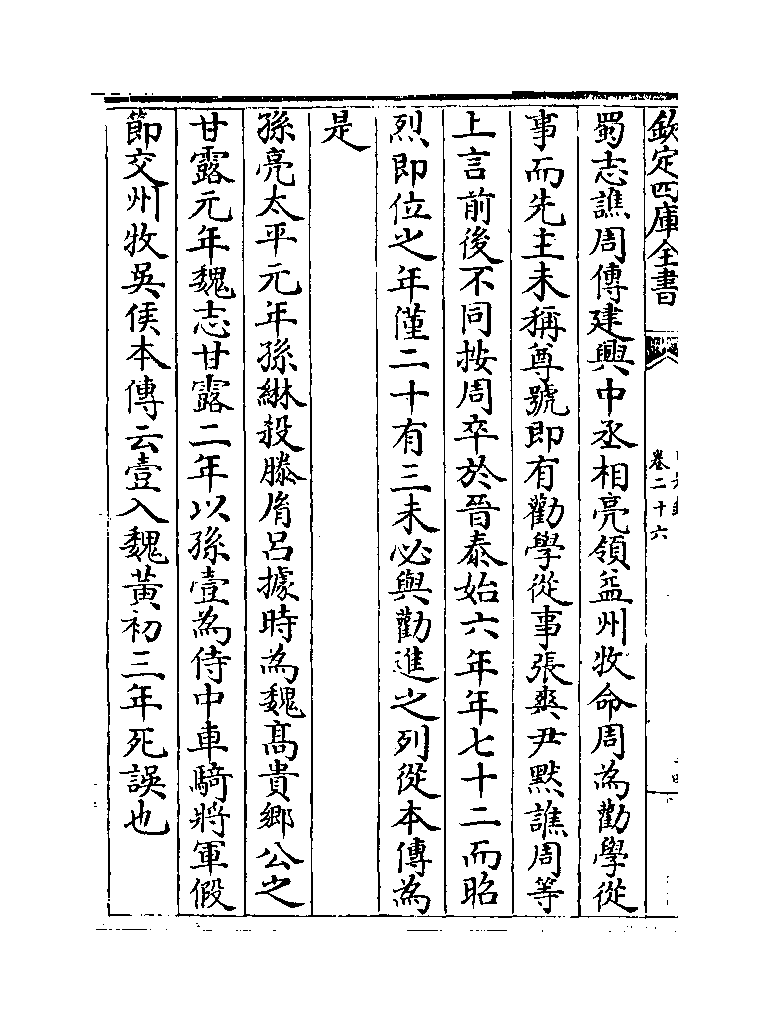 欽定四庫全書
卷二十六
蜀志譙周傳建興中丞相亮領益州牧命周為勸學從
事而先主未稱尊號即有勸學從事張爽尹默譙周等
上言前後不同按周卒於晉泰始六年年七十二而昭
烈即位之年僅二十有三未必與勸進之列從本傳為
是
孫亮太平元年孫綝殺滕脩呂據時為魏髙貴鄉公之
甘露元年魏志甘露二年以孫壹為侍中車騎將軍假
節交州牧吳侯本傳云壹入魏黃初三年死誤也